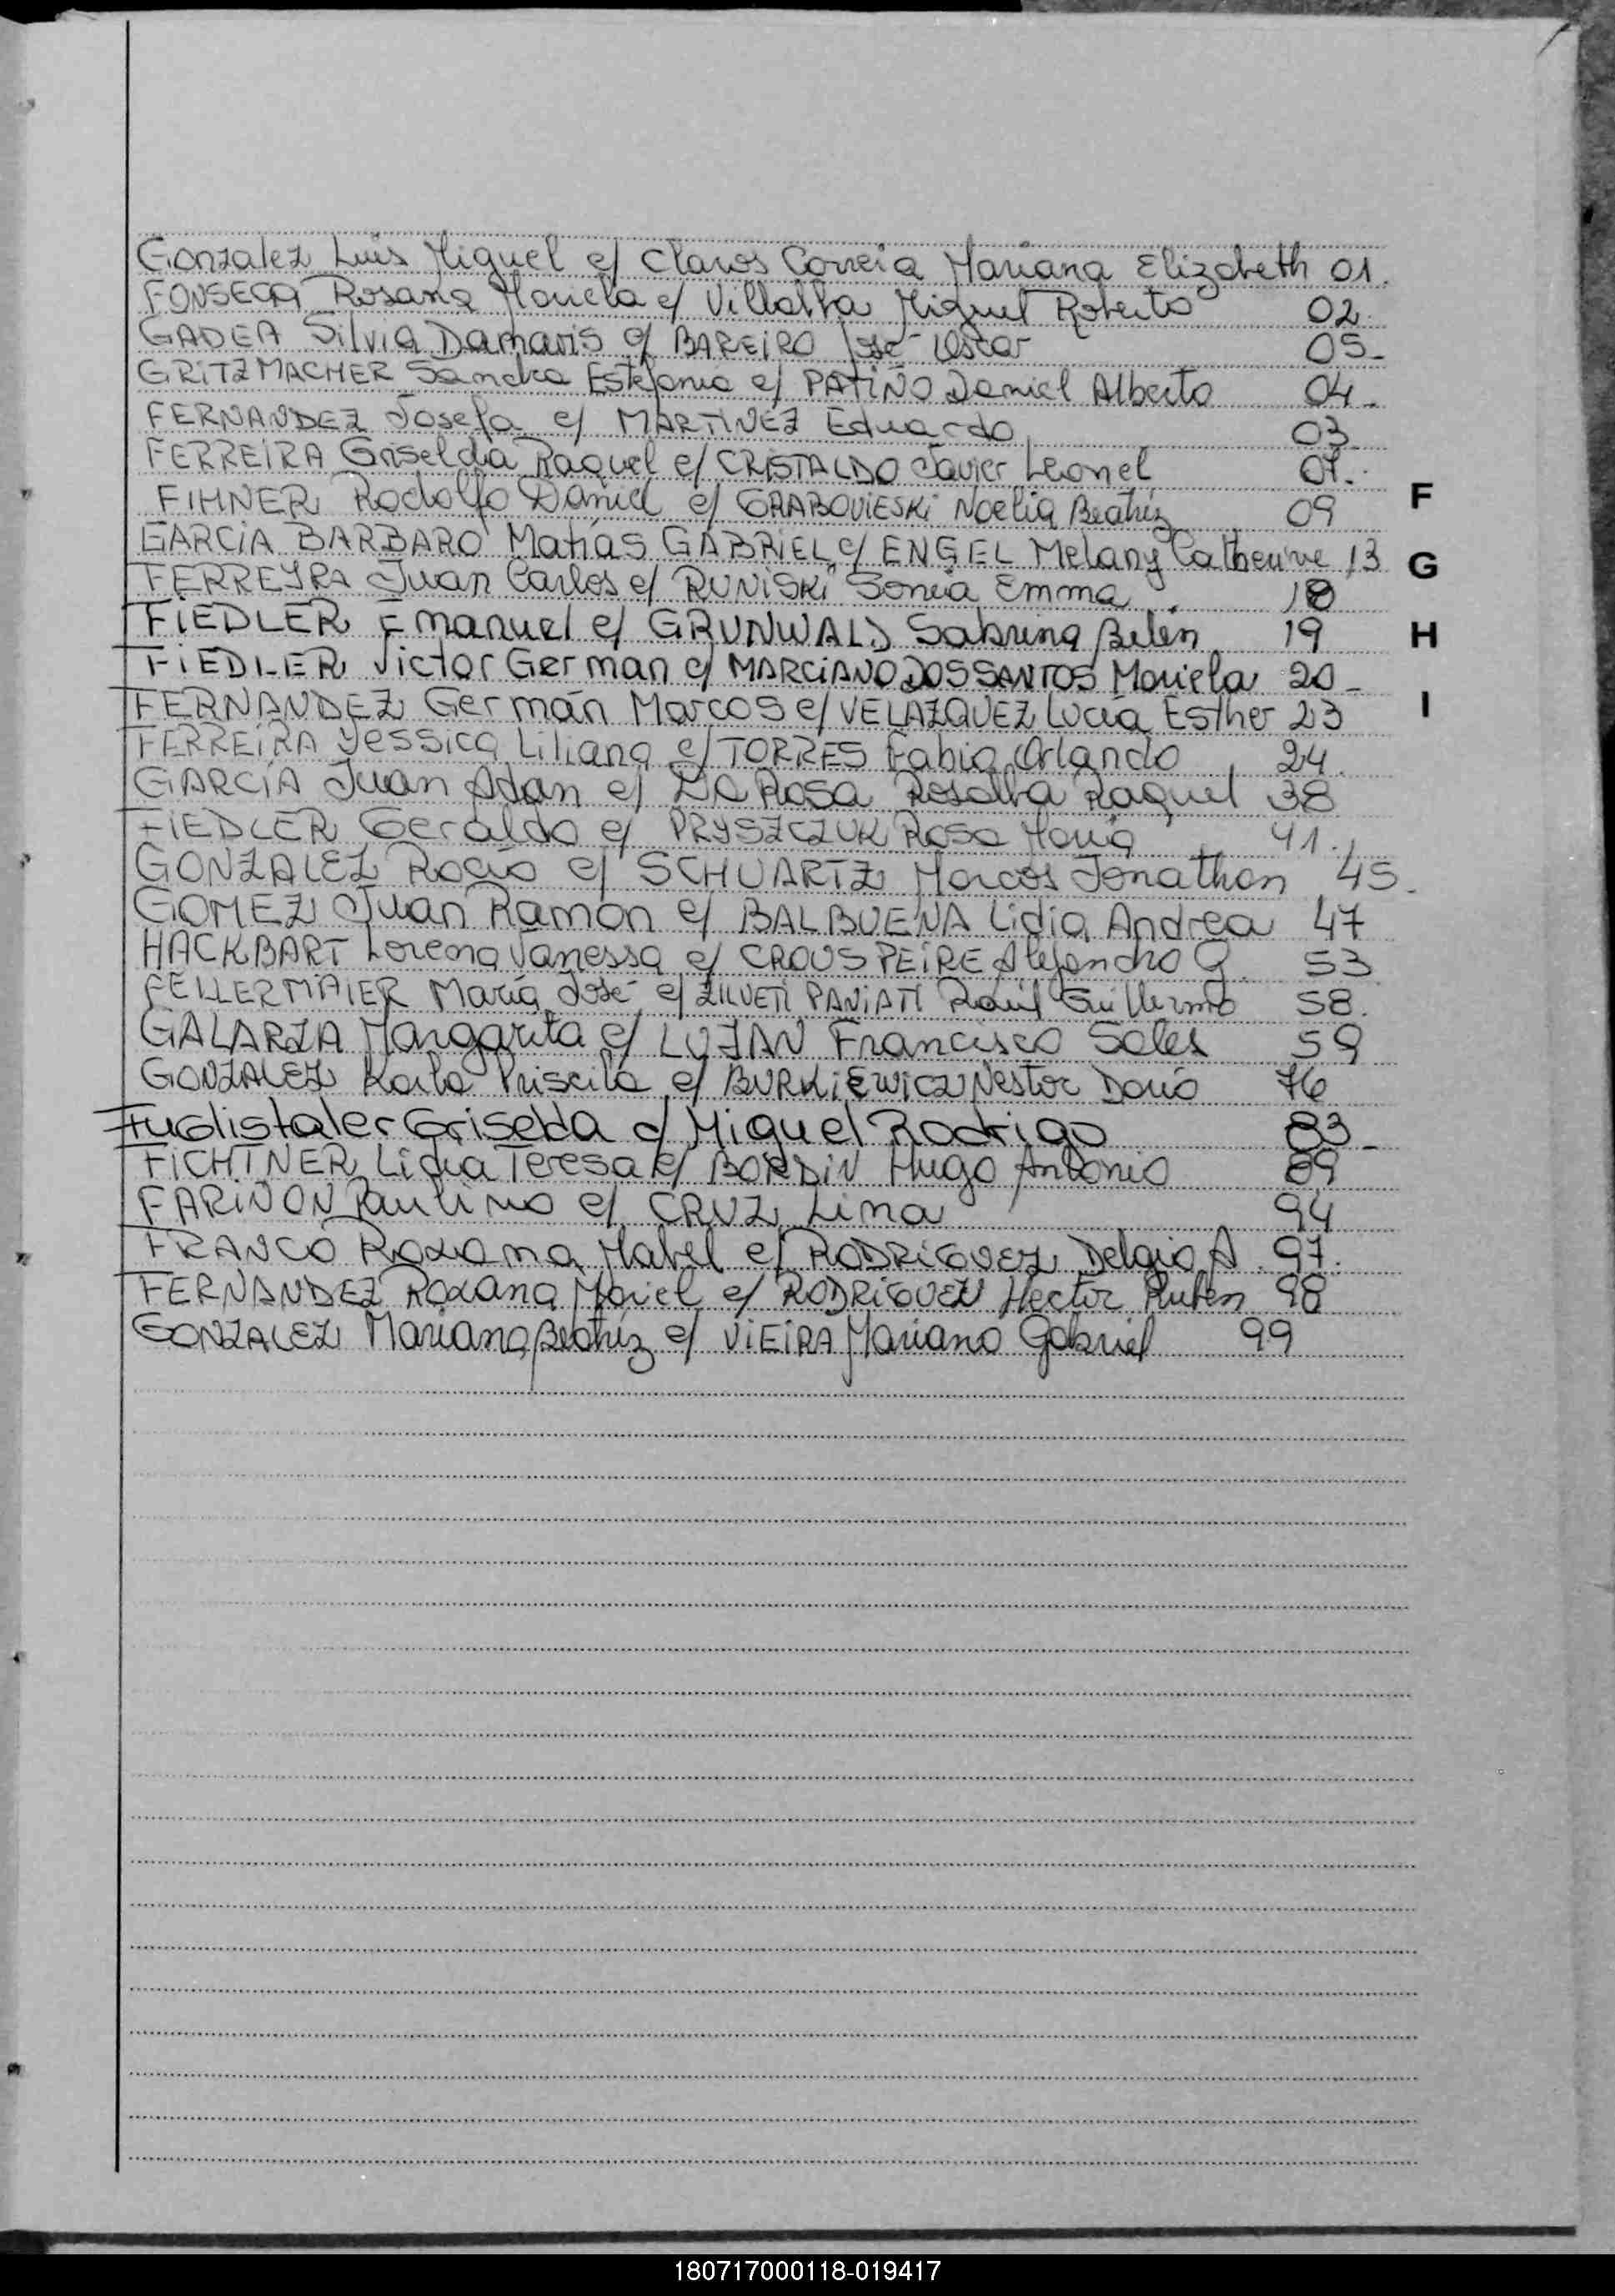 Gonzalez Luis Miguel c/ Claros Correia Mariana Elizabeth 01.
FONSECA Rosana Mariela c/ Villalba Miguel Roberto 02
GADEA Silvia Damaris c/ BAREIRO José Oscar 05-
GRITZMACHER Sandra Estefania c/ PATIÑO Daniel Alberto 04-
FERNANDEZ Josefa c/ MARTINEZ Eduardo 03
FERREIRA Griselda Raquel c/ CRISTALDO Javier Leonel 07.
FIHNER Rodolfo Daniel c/ GRABOVIESKI Noelia Beatriz 09
GARCIA BARBARO Matías GABRIEL c/ ENGEL Melany Catherine 13
FERREYRA Juan Carlos c/ RUNISKI Sonia Emma 18
FIEDLER Emanuel c/ GRUNWALD Sabrina Belen 19
FIEDLER Victor German c/ MARCIANO DOS SANTOS Mariela 20-
FERNANDEZ Germán Marcos c/ VELAZQUEZ Lucía Esther 23
FERREIRA Yessica Liliana c/ TORRES Fabio Orlando 24
GARCÍA Juan Adan c/ DA ROSA Rosalba Raquel 38
FIEDLER Geraldo c/ PRYSZCZUK Rosa María 41.
GONZALEZ Rocío c/ SCHUARTZ Marcos Jonathan 45.
GOMEZ Juan Ramón c/ BALBUENA Lidia Andrea 47
HACKBART Lorena Vanessa c/ CROUSPEIRE Alejandro G. 53
FELLERMAIER María José c/ ZILVETI PANIATI Raúl Guillermo 58.
GALARZA Margarita c/ LUJAN Francisco Sales 59
GONZALEZ Karla Priscila c/ BURKIEWICZ Nestor Dario 76
Fuglistaler Griselda c/ Miguel Rodrigo 83-
FICHTNER Lidia Teresa c/ BORDIN Hugo Antonio 89
FARIÑON Paulino c/ CRUZ Lina 94
FRANCO Roxana Mabel c/ RODRIGUEZ Delgio A. 97.
FERNANDEZ Roxana Mariel c/ RODRIGUEZ Hector Ruben 98
GONZALEZ Mariana Beatriz c/ VIEIRA Mariano Gabriel 99
F
G
H
I
180717000118-019417